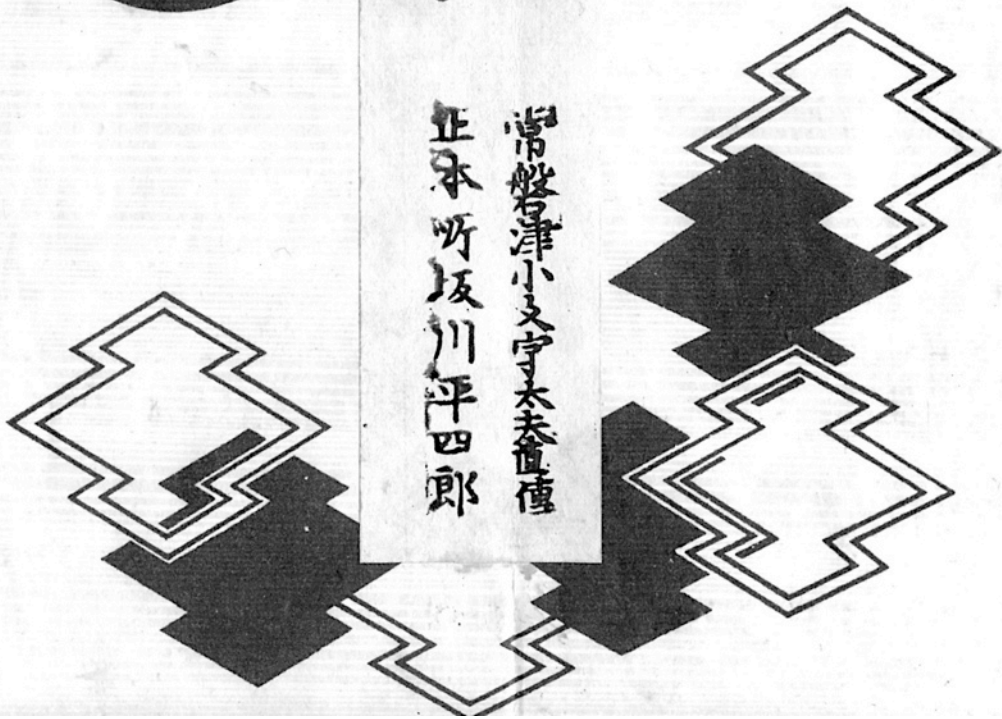 常磐津小文字太夫直傳
正本所坂川平四郎